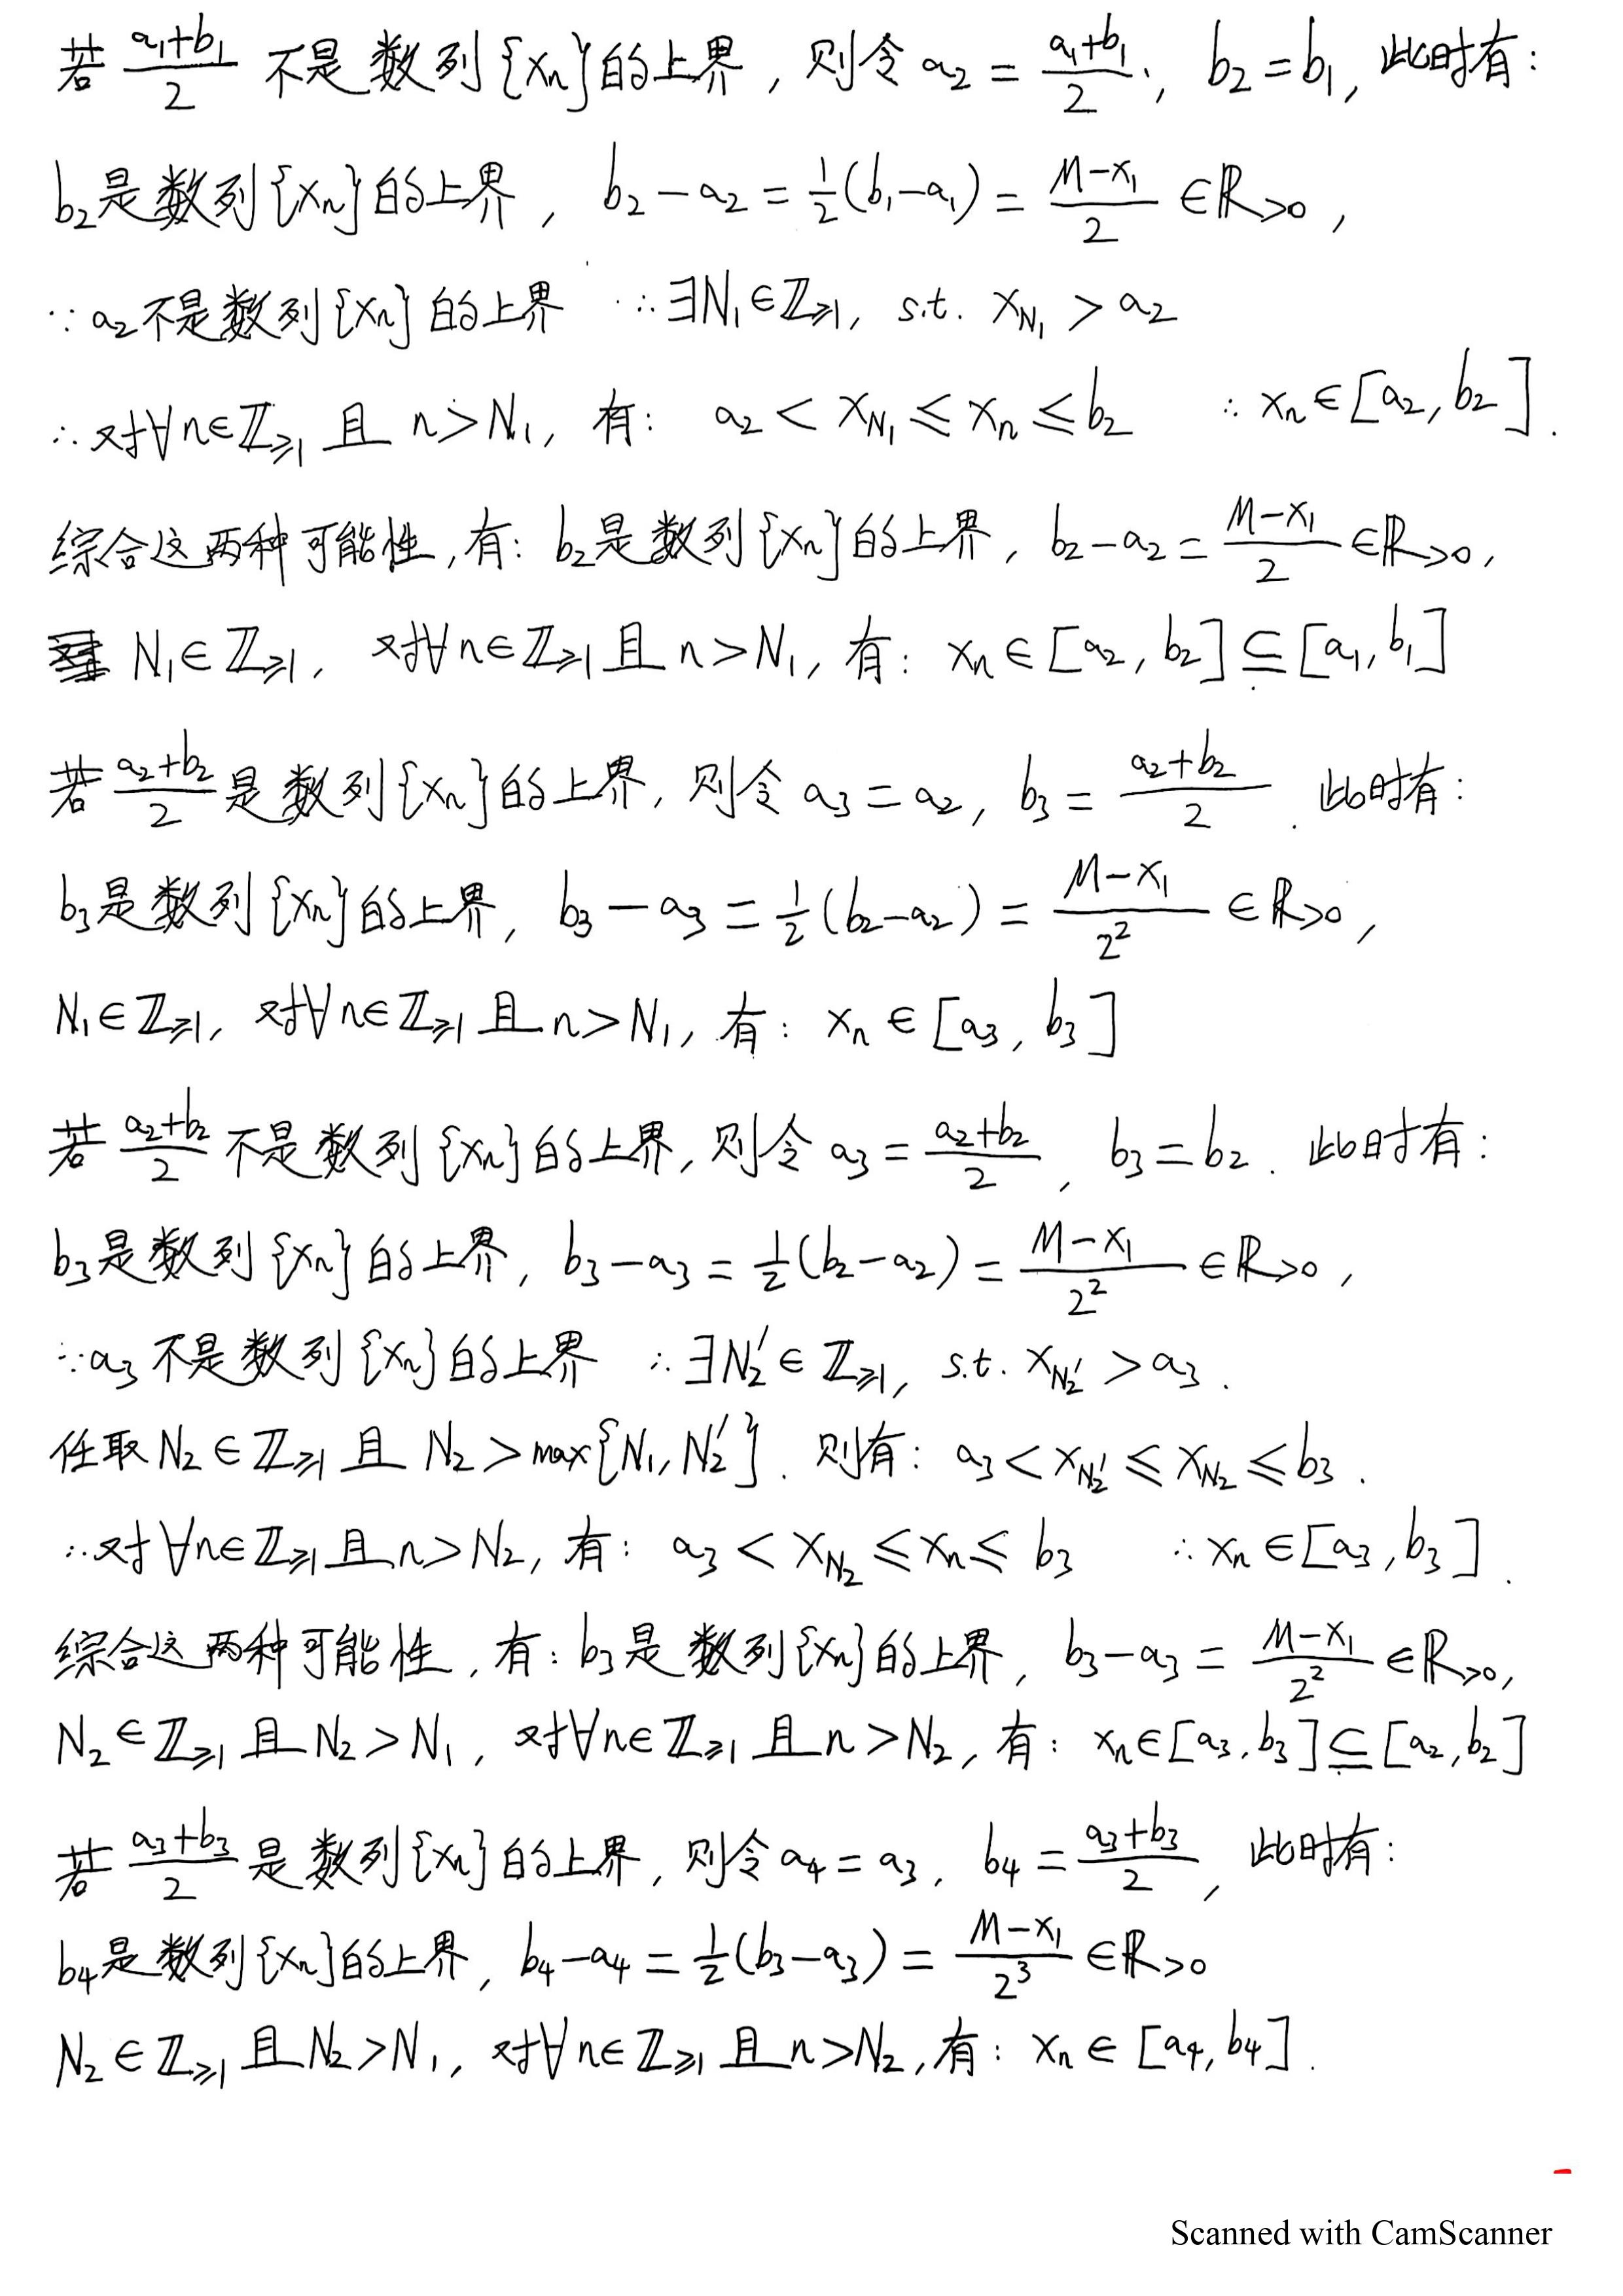 若 (a₁+b₁)/2 不是数列{xₙ}的上界，则令 a₂ = (a₁+b₁)/2， b₂=b₁，此时有：
b₂是数列{xₙ}的上界， b₂－a₂ = ½(b₁－a₁) = (M－x₁)/2 ∈ℝ>₀，
∵ a₂不是数列{xₙ}的上界 ∴ ∃N₁∈ℤ≥₁, s.t. x_{N₁} > a₂
∴ 对∀n∈ℤ≥₁ 且 n>N₁, 有： a₂ < x_{N₁} ≤ xₙ ≤ b₂ ∴ xₙ∈[a₂, b₂].
综合这两种可能性, 有： b₂是数列{xₙ}的上界， b₂－a₂ = (M－x₁)/2 ∈ℝ>₀,
N₁∈ℤ≥₁, 对∀n∈ℤ≥₁ 且 n>N₁, 有： xₙ∈[a₂, b₂]⊆[a₁, b₁]
若 (a₂+b₂)/2 是数列{xₙ}的上界, 则令 a₃ = a₂, b₃ = (a₂+b₂)/2. 此时有：
b₃是数列{xₙ}的上界, b₃－a₃ = ½(b₂－a₂) = (M－x₁)/2² ∈ℝ>₀,
N₁∈ℤ≥₁, 对∀n∈ℤ≥₁ 且 n>N₁, 有： xₙ∈[a₃, b₃]
若 (a₂+b₂)/2 不是数列{xₙ}的上界, 则令 a₃ = (a₂+b₂)/2, b₃=b₂. 此时有：
b₃是数列{xₙ}的上界, b₃－a₃ = ½(b₂－a₂) = (M－x₁)/2² ∈ℝ>₀,
∵ a₃不是数列{xₙ}的上界 ∴ ∃N₂′∈ℤ≥₁, s.t. x_{N₂′} > a₃.
任取N₂∈ℤ≥₁ 且 N₂>max{N₁, N₂′}. 则有： a₃ < x_{N₂′} ≤ x_{N₂} ≤ b₃.
∴ 对∀n∈ℤ≥₁ 且 n>N₂, 有： a₃ < x_{N₂} ≤ xₙ ≤ b₃ ∴ xₙ∈[a₃, b₃].
综合这两种可能性, 有： b₃是数列{xₙ}的上界, b₃－a₃ = (M－x₁)/2² ∈ℝ>₀,
N₂∈ℤ≥₁ 且 N₂>N₁, 对∀n∈ℤ≥₁ 且 n>N₂, 有： xₙ∈[a₃, b₃]⊆[a₂, b₂]
若 (a₃+b₃)/2 是数列{xₙ}的上界, 则令 a₄=a₃, b₄ = (a₃+b₃)/2, 此时有：
b₄是数列{xₙ}的上界, b₄－a₄ = ½(b₃－a₃) = (M－x₁)/2³ ∈ℝ>₀
N₂∈ℤ≥₁ 且 N₂>N₁, 对∀n∈ℤ≥₁ 且 n>N₂, 有： xₙ∈[a₄, b₄].
Scanned with CamScanner